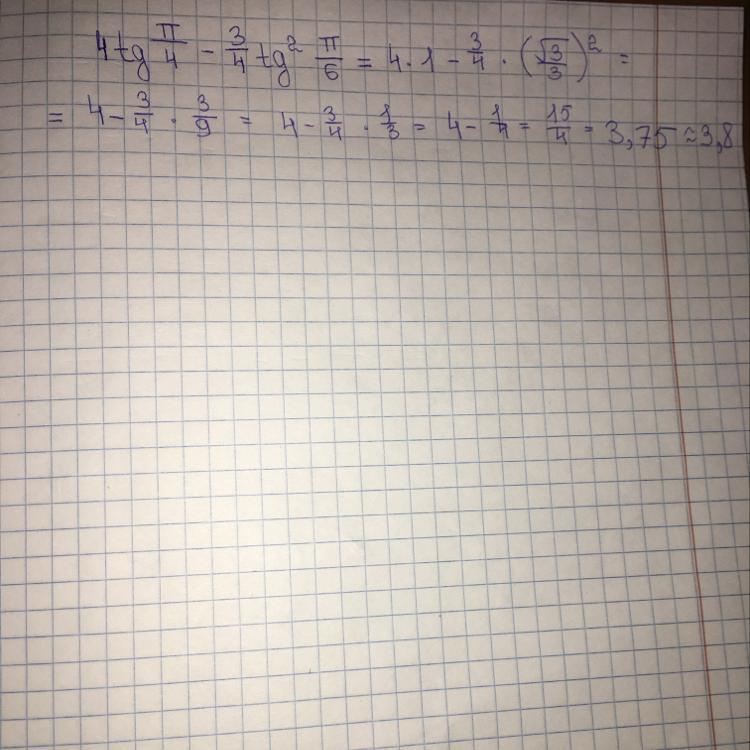 4tg π/4 - 3/4 tg² π/6 = 4·1 - 3/4 · (√3/3)² =
= 4 - 3/4 · 3/9 = 4 - 3/4 · 1/3 = 4 - 1/4 = 15/4 = 3,75 ≈ 3,8